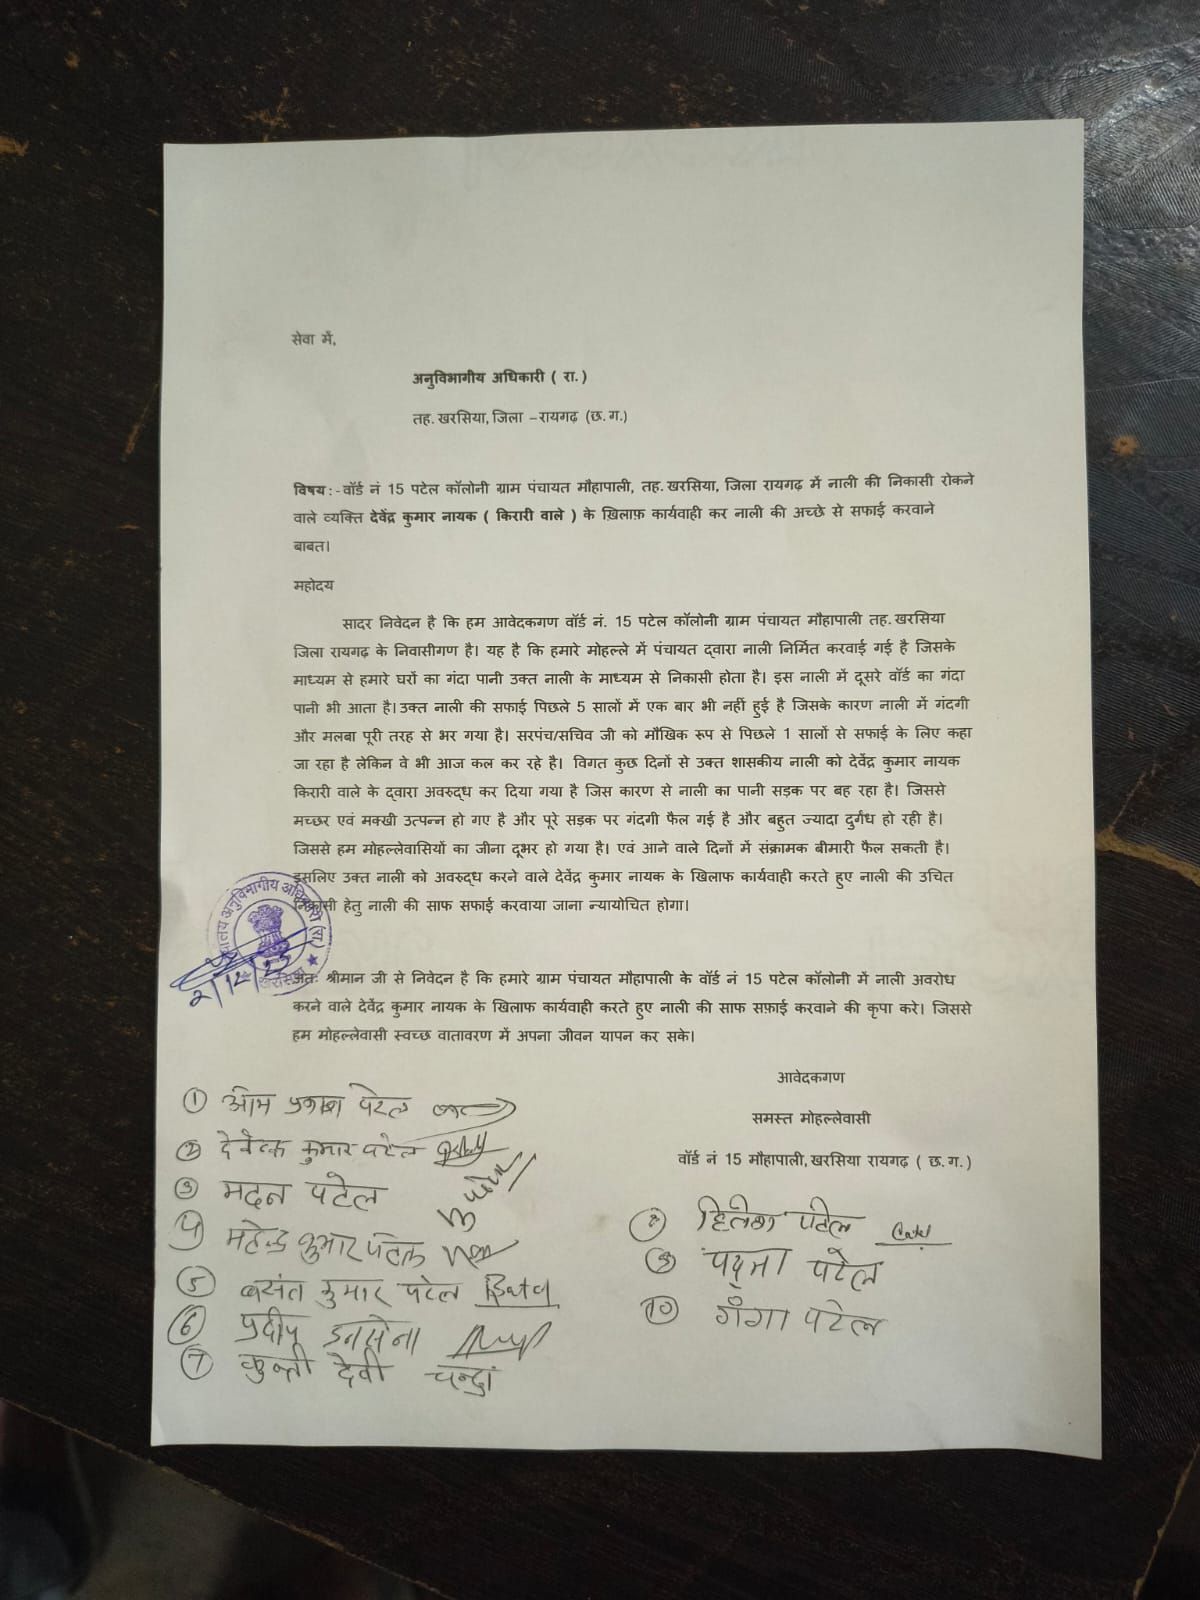 सेवा में,
अनुविभागीय अधिकारी ( रा. )
तह. खरसिया, जिला – रायगढ़ (छ. ग.)
विषय : - वॉर्ड नं 15 पटेल कॉलोनी ग्राम पंचायत मौहापाली, तह. खरसिया, जिला रायगढ़ में नाली की निकासी रोकने
वाले व्यक्ति देवेंद्र कुमार नायक ( किरारी वाले ) के ख़िलाफ़ कार्यवाही कर नाली की अच्छे से सफाई करवाने
बाबत।
महोदय
सादर निवेदन है कि हम आवेदकगण वॉर्ड नं. 15 पटेल कॉलोनी ग्राम पंचायत मौहापाली तह. खरसिया
जिला रायगढ़ के निवासीगण है। यह है कि हमारे मोहल्ले में पंचायत द्वारा नाली निर्मित करवाई गई है जिसके
माध्यम से हमारे घरों का गंदा पानी उक्त नाली के माध्यम से निकासी होता है। इस नाली में दूसरे वॉर्ड का गंदा
पानी भी आता है। उक्त नाली की सफाई पिछले 5 सालों में एक बार भी नहीं हुई है जिसके कारण नाली में गंदगी
और मलबा पूरी तरह से भर गया है। सरपंच/सचिव जी को मौखिक रूप से पिछले 1 सालों से सफाई के लिए कहा
जा रहा है लेकिन वे भी आज कल कर रहे है। विगत कुछ दिनों से उक्त शासकीय नाली को देवेंद्र कुमार नायक
किरारी वाले के द्वारा अवरुद्ध कर दिया गया है जिस कारण से नाली का पानी सड़क पर बह रहा है। जिससे
मच्छर एवं मक्खी उत्पन्न हो गए है और पूरे सड़क पर गंदगी फैल गई है और बहुत ज्यादा दुर्गंध हो रही है।
जिससे हम मोहल्लेवासियों का जीना दूभर हो गया है। एवं आने वाले दिनों में संक्रामक बीमारी फैल सकती है।
इसलिए उक्त नाली को अवरुद्ध करने वाले देवेंद्र कुमार नायक के खिलाफ कार्यवाही करते हुए नाली की उचित
निकासी हेतु नाली की साफ सफाई करवाया जाना न्यायोचित होगा।
अतः श्रीमान जी से निवेदन है कि हमारे ग्राम पंचायत मौहापाली के वॉर्ड नं 15 पटेल कॉलोनी में नाली अवरोध
करने वाले देवेंद्र कुमार नायक के खिलाफ कार्यवाही करते हुए नाली की साफ सफ़ाई करवाने की कृपा करे। जिससे
हम मोहल्लेवासी स्वच्छ वातावरण में अपना जीवन यापन कर सके।
आवेदकगण
समस्त मोहल्लेवासी
वॉर्ड नं 15 मौहापाली, खरसिया रायगढ़ ( छ. ग. )
अनुविभागीय अधिकारी (रा)
खरसिया
① ओम प्रकाश पटेल
② कुमार पटेल
③ मदन पटेल
4 महेन्द्र कुमार पटेल
⑤ बसंत कुमार पटेल
⑥ प्रदीप
⑦ कुन्ती देवी चन्द्रा
हितेश पटेल
⑨ पद्मा पटेल
⑩ गँगा पटेल